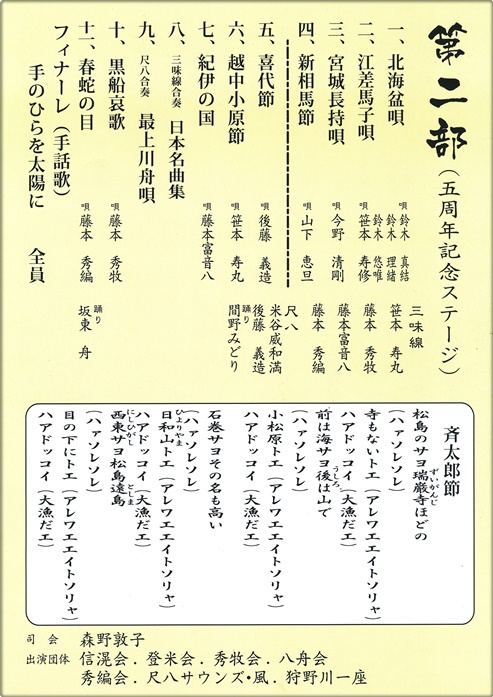 第二部（五周年記念ステージ）
一、北海盆唄　唄 鈴木　真結
鈴木　理緒
鈴木　悠唯
二、江差馬子唄　唄 笹本　寿修
三、宮城長持唄　唄 今野　清剛
四、新相馬節　唄 山下　恵旦
三味線
笹本　寿丸
藤本　秀牧
藤本富音八
藤本　秀編
尺八
米谷威和満
後藤　義造
五、喜代節　唄 後藤　義造
六、越中小原節　唄 笹本　寿丸　踊り 間野みどり
七、紀伊の国　唄 藤本富音八
八、三味線合奏　日本名曲集
九、尺八合奏　最上川舟唄
十、黒船哀歌　唄 藤本　秀牧
十一、春蛇の目　唄 藤本　秀編　踊り 坂東　舟
フィナーレ（手話歌）
手のひらを太陽に　全員
斉太郎節
松島のサヨ瑞巌寺ほどの
ずいがんじ
（ハァソレソレ）
寺もないトエ（アレワエエイトソリャ）
ハアドッコイ（大漁だエ）
前は海サヨ後は山で
うしろ
（ハァソレソレ）
小松原トエ（アレワエエイトソリャ）
ハアドッコイ（大漁だエ）
石巻サヨその名も高い
（ハァソレソレ）
日和山トエ（アレワエエイトソリャ）
ひよりやま
ハアドッコイ（大漁だエ）
西東サヨ松島遠島
にしひがし
としま
（ハァソレソレ）
目の下にトエ（アレワエエイトソリャ）
ハアドッコイ（大漁だエ）
司　会　森野敦子
出演団体　信滉会．登米会．秀牧会．八舟会
秀編会．尺八サウンズ・風．狩野川一座